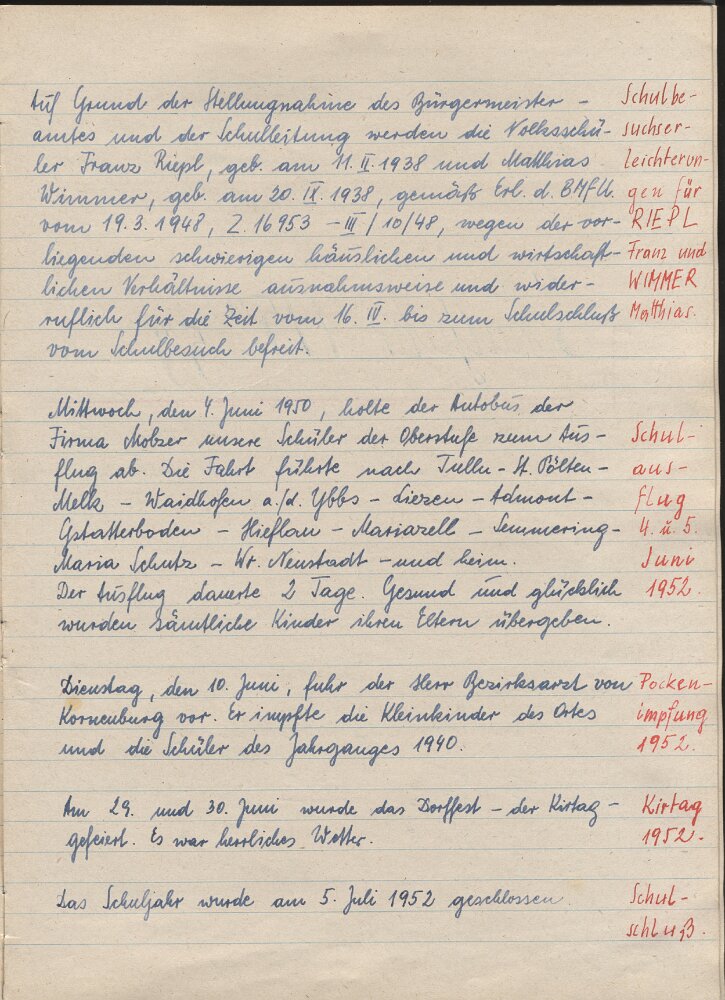 Auf Grund der Stellungnahme des Bürgermeister-
amtes und der Schulleitung werden die Volksschü-
ler Franz Riepl, geb. am 11. II. 1938 und Matthias
Wimmer, geb. am 20. IX. 1938, gemäß Erl. d. BMfU.
vom 19.3.1948, Z. 16953 - III/10/48, wegen der vor-
liegenden schwierigen häuslichen und wirtschaft-
lichen Verhältnisse ausnahmsweise und wider-
ruflich für die Zeit vom 16. IV. bis zum Schulschluß
vom Schulbesuch befreit.
Schulbe-
suchser-
leichterun-
gen für
RIEPL
Franz und
WIMMER
Matthias.
Mittwoch, den 4. Juni 1950, holte der Autobus der
Firma Mobzer unsere Schüler der Oberstufe zum Aus-
flug ab. Die Fahrt führte nach Tulln - St. Pölten -
Melk - Waidhofen a./d. Ybbs - Liezen - Admont -
Gstatterboden - Hieflau - Mariazell - Semmering -
Maria Schutz - Wr. Neustadt - und heim.
Der Ausflug dauerte 2 Tage. Gesund und glücklich
wurden sämtliche Kinder ihren Eltern übergeben.
Schul-
aus-
flug
4. u. 5.
Juni
1952.
Dienstag, den 10. Juni, fuhr der Herr Bezirksarzt von
Korneuburg vor. Er impfte die Kleinkinder des Ortes
und die Schüler des Jahrganges 1940.
Pocken-
impfung
1952.
Am 29. und 30. Juni wurde das Dorffest - der Kirtag -
gefeiert. Es war herrliches Wetter.
Kirtag
1952.
Das Schuljahr wurde am 5. Juli 1952 geschlossen.
Schul-
schluß.